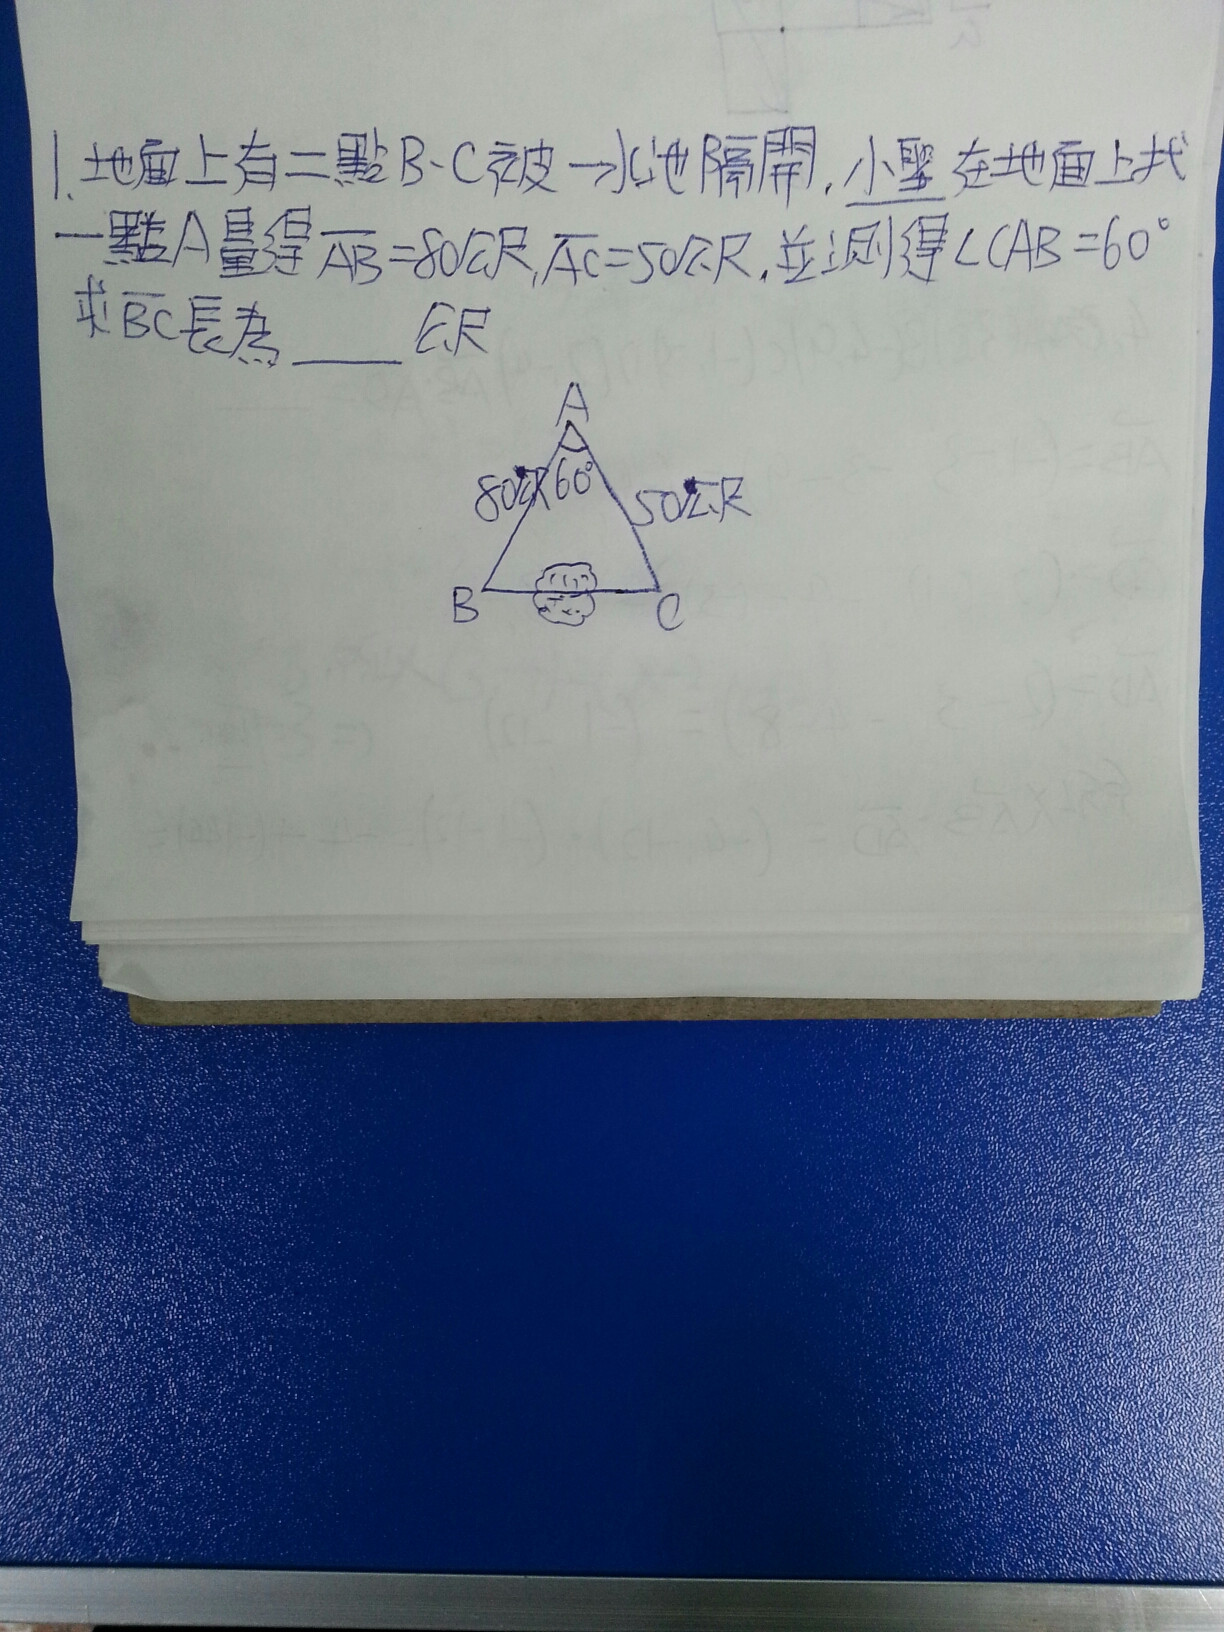 1.地面上有二點B、C被一水池隔開,小聖在地面上找
一點A量得AB=80公尺,AC=50公尺,並測得∠CAB=60°
求BC長為____公尺
A
80公尺 60° 50公尺
B C